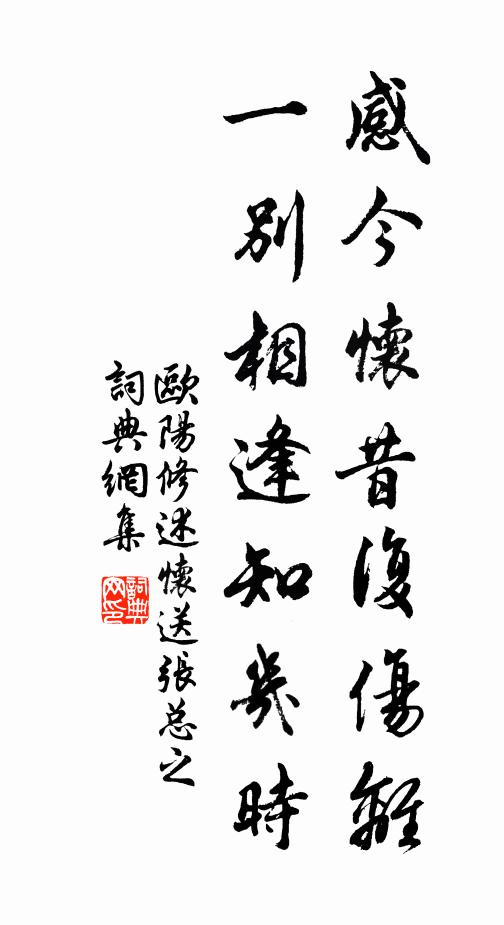 感今懷昔復傷離
一別相逢知幾時
歐陽修述懷送張惣之
詞典網集
詞典网印